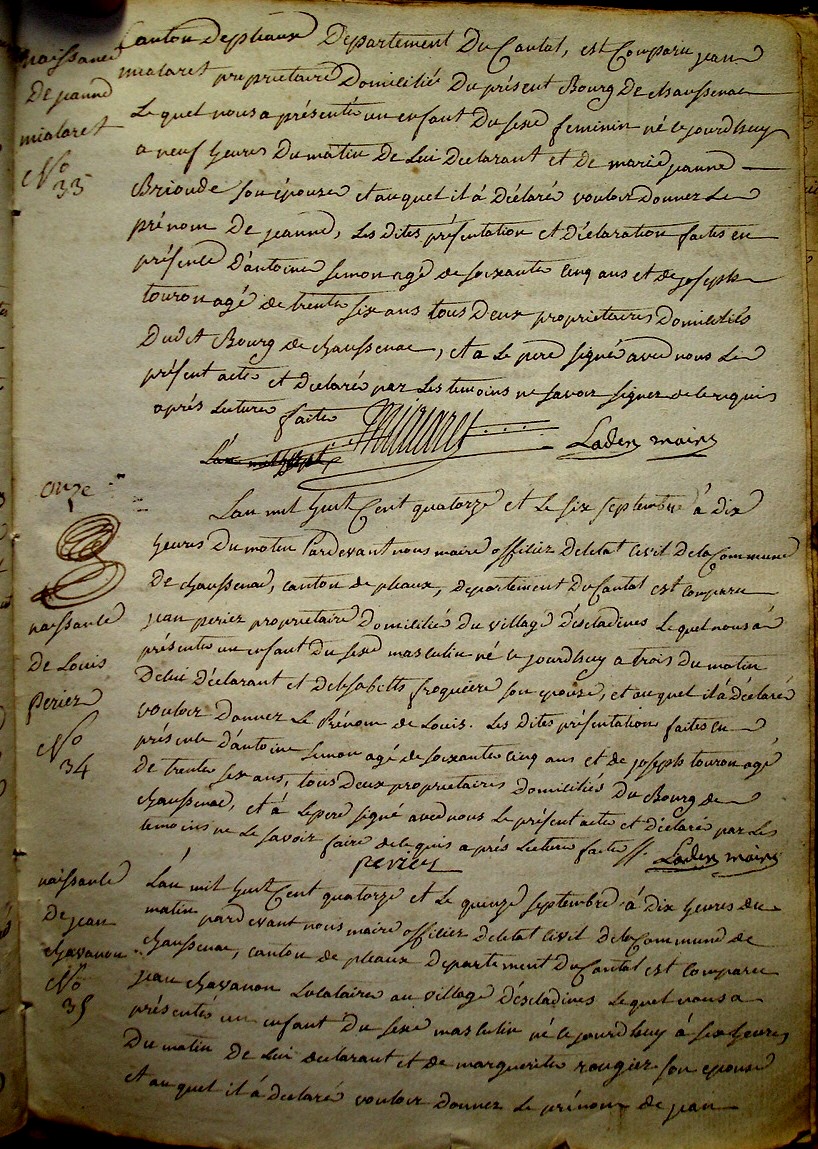 naissance
De jeanne
mialaret
No
33
Canton De pleaux Departement Du Cantal, est Comparu jean
mialaret proprietaire Domicilié Du présent Bourg De chaussenac
Le quel nous a présenté un enfant Du sexe feminin né ce jourdhuy
a neuf heures Du matin De Lui Declarant et de marie jeanne
Brioude son épouse et auquel il á Déclaré vouloir Donner Le
prénom De jeanne, Les dites présentation et Déclaration faites en
présence D'antoine Simon agé de soixante cinq ans et de joseph
touron agé de trente six ans tous Deux proprietaires Domiciliés
Dudit Bourg de chaussenac, et a Le pere signé avec nous Le
présent acte et Declaré par Les temoins ne savoir signer de ce requis
aprés Lecture faite
Mialaret Laden maire
L'an mil sept
onze
L'an mil huit Cent quatorze et Le six septembre á dix
heures Du matin Pardevant nous maire officier De letat Civil De la Commune
De chaussenac, canton de pleaux, Departement Du Cantal est comparu
naissance
De Louis
Periez
No
34
jean periez proprietaire Domicilié Du village D'éscladines Le quel nous á
présenté un enfant Du sexe masculin né ce jourdhuy a trois Du matin
De lui Déclarant et Delisabette froquiere son epouse, et auquel il á Déclaré
vouloir Donner Le Prénom de Louis. Les dites présentation faites en
présence d'antoine Simon agé de soixante cinq ans et de joseph touron agé
De trente six ans, tous Deux proprietaires Domiciliés Du Bourg de
chaussenac, et á Le pere signé avec nous Le présent acte et Déclaré par Les
temoins ne Le savoir faire de ce quis aprés Lecture faite //. Laden maire
periez
naissance
De jean
chavanon
No
35
L'an mil huit Cent quatorze et Le quinze septembre á dix heures du
matin pardevant nous maire officier De letat Civil De la Commune de
chaussenac, canton de pleaux Departement Du Cantal est comparu
jean chavanon Locataire au village D'éscladines Le quel nous a
présenté un enfant Du sexe masculin né ce jourdhuy á six heures
Du matin De Lui declarant et de marguerite rougier son epouse
et au quel il á declaré vouloir donner Le prénom de jean